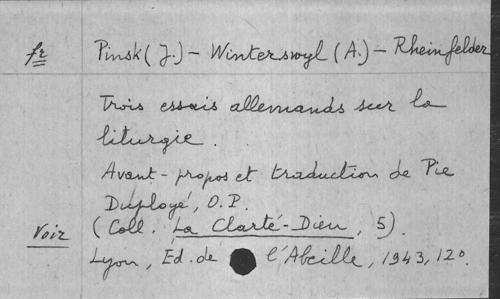 fr Pinsk (J.) - Winterswyl (A.) - Rheinfelder
Trois essais allemands sur la
liturgie.
Avant-propos et traduction de Pie
Duployé, O.P.
Voir (Coll. La Clarté-Dieu, 5).
Lyon, Ed. de l'Abeille, 1943, 12°.